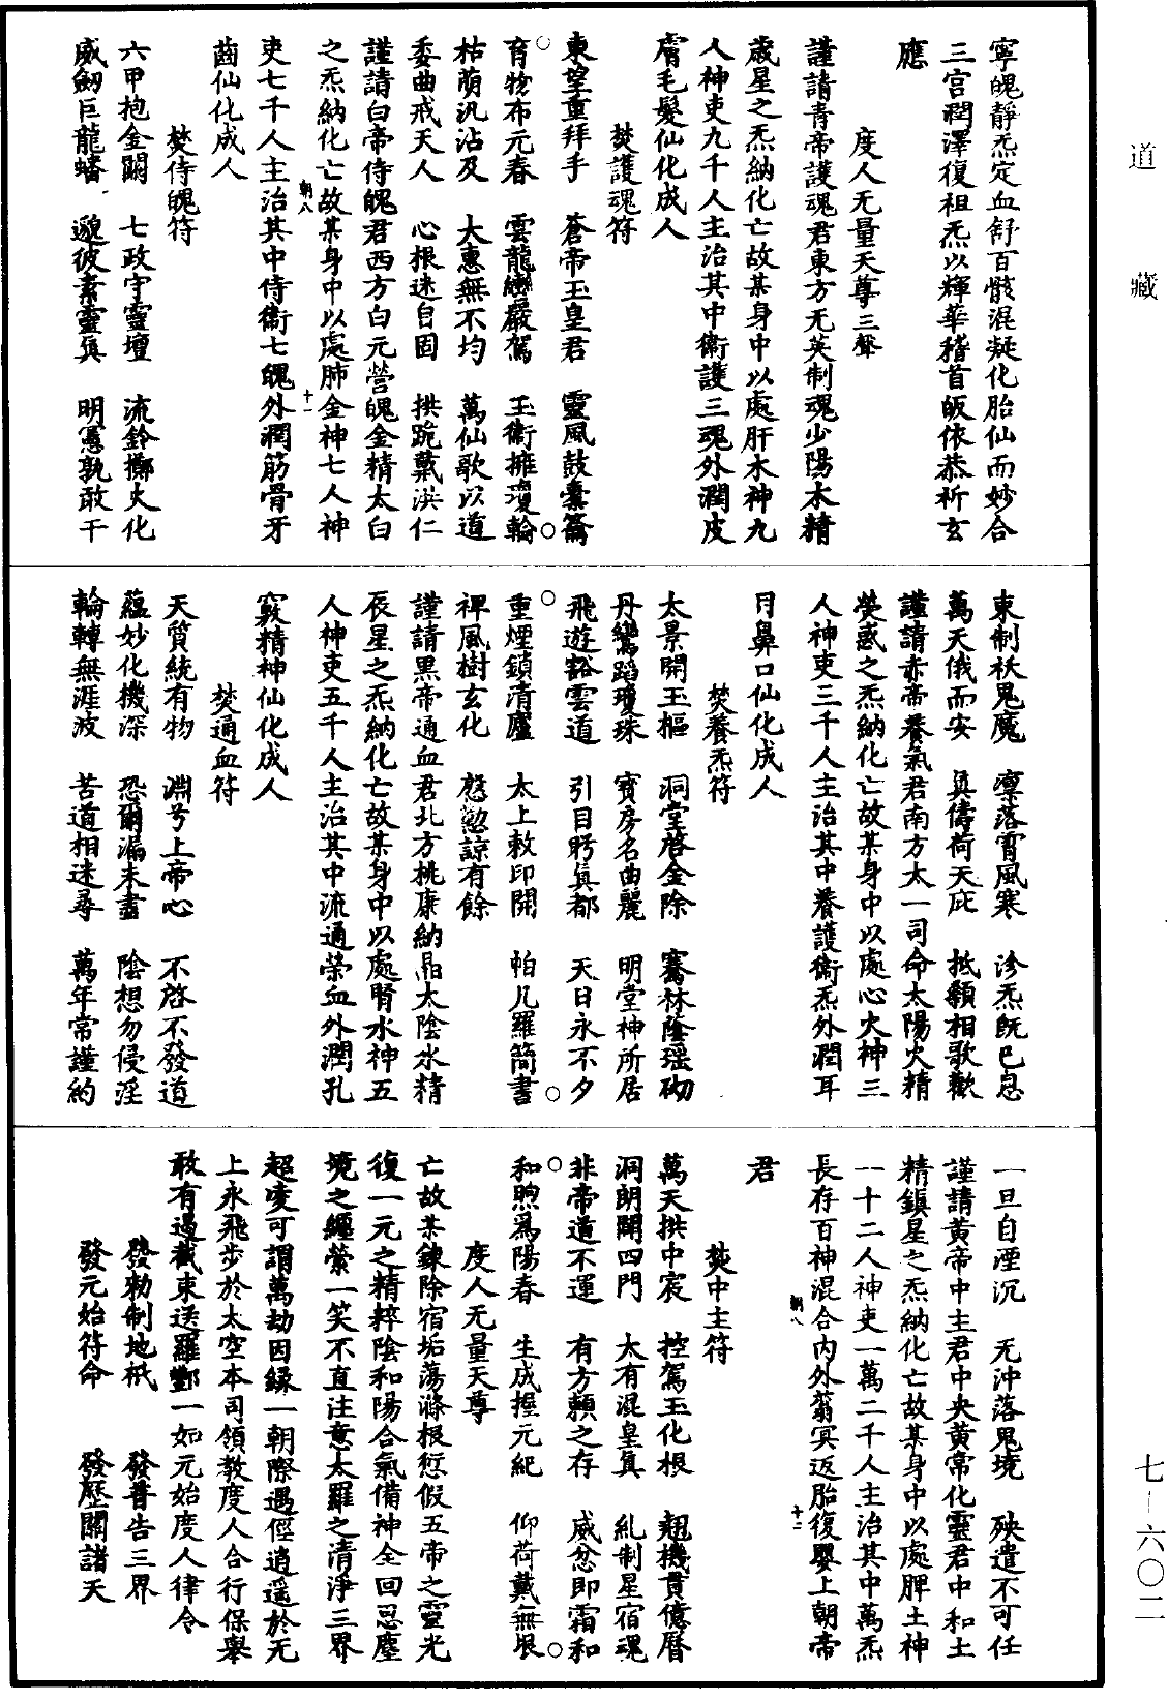 道藏
寧魄靜炁定血舒百骸混凝化胎仙而妙合
三宮潤澤復祖炁以輝華稽首皈依恭祈玄
應
度人无量天尊三聲
謹請青帝護魂君東方无英制魂少陽木精
歲星之炁納化亡故某身中以處肝木神九
人神吏九千人主治其中衛護三魂外潤皮
膚毛髮仙化成人
焚護魂符
東望重拜手　蒼帝玉皇君　靈風鼓橐籥
育物布元春　雲龍巒嚴駕　玉衛擁瓊輪
枯萌汎沾及　大惠無不均　萬仙歌以道
委曲戒天人　心根迷自固　拱跪戴洪仁
謹請白帝侍魄君西方白元營魄金精太白
之炁納化亡故某身中以處肺金神七人神
吏七千人主治其中侍衛七魄外潤筋骨牙
齒仙化成人
朝八　十一
焚侍魄符
六甲抱金關　七政守靈壇　流鈴擲火化
威劒巨龍蟠　邈彼素靈真　明憲孰敢干
東制袄鬼魔　凛落霄風寒　沴炁既已息
萬天俄而安　真儔荷天庇　抵額相歌歡
謹請赤帝養氣君南方太一司命太陽火精
熒惑之炁納化亡故某身中以處心火神三
人神吏三千人主治其中養護衛炁外潤耳
目鼻口仙化成人
焚養炁符
太景開玉樞　洞堂啓金除　騫林蔭瑶砌
丹鸞蹈瓊珠　寶房名曲麗　明堂神所居
飛遊豁雲道　引目眄真都　天日永不夕
重煙鎖清廬　太上敕印開　帕几羅簡書
禆風樹玄化　慇懃諒有餘
謹請黑帝通血君北方桃康納晶太陰水精
辰星之炁納化亡故某身中以處腎水神五
人神吏五千人主治其中流通榮血外潤孔
竅精神仙化成人
焚通血符
天質統有物　淵兮上帝心　不啓不發道
蘊妙化機深　恐爾漏未盡　陰想勿侵淫
輪轉無涯波　苦道相迷尋　萬年常謹約
一旦自湮沉　无沖落鬼境　殃遣不可任
謹請黃帝中主君中央黃常化靈君中和土
精鎮星之炁納化亡故某身中以處脾土神
一十二人神吏一萬二千人主治其中萬炁
長存百神混合内外翁冥返胎復嬰上朝帝
君
朝八　十二
焚中主符
萬天拱中宸　控駕玉化根　翹機貫億曆
洞朗開四門　太有混皇真　糺制星宿魂
非帝道不運　有方賴之存　威忿即霜和
和煦爲陽春　生成握元紀　仰荷戴無垠
度人无量天尊
亡故某鍊除宿垢蕩滌根愆假五帝之靈光
復一元之精粹陰和陽合氣備神全回思塵
境之纏縈一笑不直注意太羅之清淨三界
超凌可謂萬劫因緣一朝際遇徑逍遥於无
上永飛步於太空本司領教度人合行保舉
敢有遏截束送羅酆一如元始度人律令
發勑制地祇　發普告三界
發元始符命　發歷關諸天
七—六〇二